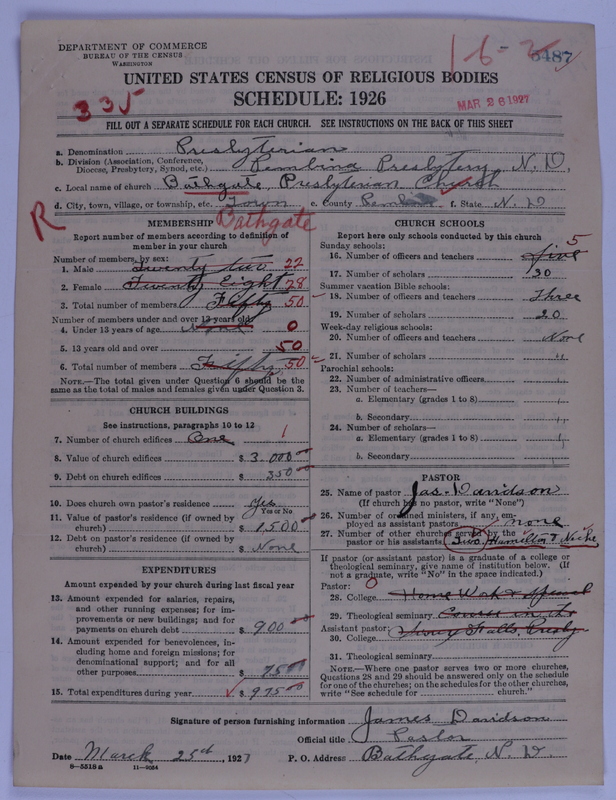 DEPARTMENT OF COMMERCE
BUREAU OF THE CENSUS
WASHINGTON
1 6 - 2
5487
UNITED STATES CENSUS OF RELIGIOUS BODIES
SCHEDULE: 1926
335
MAR 26 1927
FILL OUT A SEPARATE SCHEDULE FOR EACH CHURCH. SEE INSTRUCTIONS ON THE BACK OF THIS SHEET
a. Denomination Presbyterian
b. Division (Association, Conference, Diocese, Presbytery, Synod, etc.) Pembina Presbytery, N. D.
c. Local name of church Bathgate Presbyterian Church
d. City, town, village, or township, etc. Town e. County Pembina f. State N. D
R
Bathgate
MEMBERSHIP
Report number of members according to definition of
member in your church
Number of members by sex:
1. Male Twenty two 22
2. Female Twenty Eight 28
3. Total number of members Fifty 50
Number of members under and over 13 years old:
4. Under 13 years of age None 0
5. 13 years old and over 50
6. Total number of members Fifty 50
NOTE.—The total given under Question 6 should be the
same as the total of males and females given under Question 3.
CHURCH BUILDINGS
See instructions, paragraphs 10 to 12
7. Number of church edifices One 1
8. Value of church edifices $ 3.000 00
9. Debt on church edifices $ 350 00
10. Does church own pastor's residence Yes
Yes or No
11. Value of pastor's residence (if owned by
church) $ 1,500 00
12. Debt on pastor's residence (if owned by
church) $ None
EXPENDITURES
Amount expended by your church during last fiscal year
13. Amount expended for salaries, repairs,
and other running expenses; for im-
provements or new buildings; and for
payments on church debt $ 900 00
14. Amount expended for benevolences, in-
cluding home and foreign missions; for
denominational support; and for all
other purposes $ 75 00
15. Total expenditures during year $ 975 00
CHURCH SCHOOLS
Report here only schools conducted by this church
Sunday schools:
16. Number of officers and teachers five 5
17. Number of scholars 30
Summer vacation Bible schools:
18. Number of officers and teachers Three
19. Number of scholars 20
Week-day religious schools:
20. Number of officers and teachers None
21. Number of scholars "
Parochial schools:
22. Number of administrative officers "
23. Number of teachers—
a. Elementary (grades 1 to 8) "
b. Secondary "
24. Number of scholars—
a. Elementary (grades 1 to 8) "
b. Secondary "
PASTOR
25. Name of pastor Jas. Davidson
(If church has no pastor, write "None")
26. Number of ordained ministers, if any, em-
ployed as assistant pastors none
27. Number of other churches served by the
pastor or his assistants Two Hamilton &
If pastor (or assistant pastor) is a graduate of a college or
theological seminary, give name of institution below. (If
not a graduate, write "No" in the space indicated.)
Pastor: 0
28. College Home Work & Special
29. Theological seminary Course in the
Assistant pastor:
30. College Sioux Falls, Presby
31. Theological seminary
NOTE.—Where one pastor serves two or more churches,
Questions 28 and 29 should be answered only on the schedule
for one of the churches; on the schedules for the other churches,
write "See schedule for church."
Signature of person furnishing information James Davidson
Official title Pastor
Date March 25th, 1927 P. O. Address Bathgate, N. D.
8—5518a 11—9034